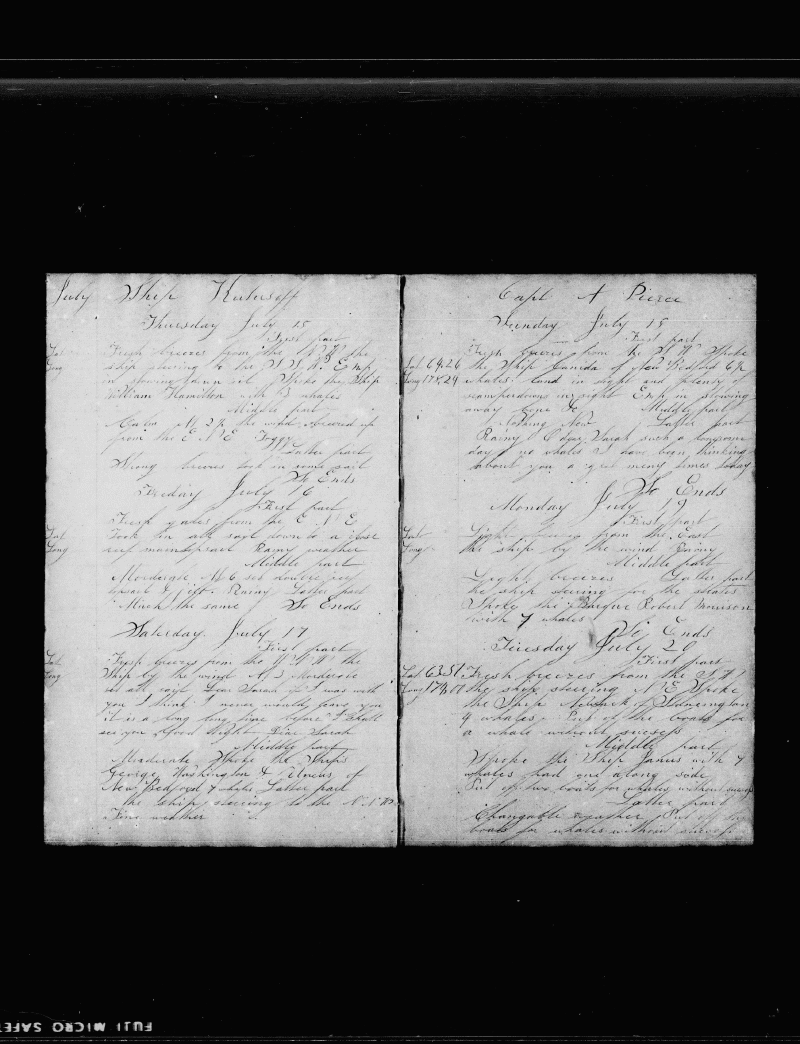 July Ship Kutusoff
Thursday July 15
First part
Lat Fresh breezes from the the
Long ship steering to the
in Spoke the Ship
William Hamilton with whales
Middle part
Calm At 2 the wind breezed up
from the E N E Foggy
Latter part
Strong breezes took in some sail
So Ends
Friday July 16
First part
Fresh gales from the E N E
Lat Took in all sail down to a close
Long reef maintopsail Rainy weather
Middle part
Moderate At 6 set double reef
topsail & jib Rainy Latter part
Much the same So Ends
Saturday July 17
First part
Lat Fresh breezes from the the
Long Ship by the wind At 3 Moderate
set all sail Dear Sarah if I was with
you I think I never would leave you
it is a long long time before I shall
see you Good Night Dear Sarah
Middle part
Moderate Spoke the Ships
George Washington & of
New Bedford 7 whales Latter part
the ship steering to the
Fine weather
Capt A Pierce
Sunday July 18
First part
Fresh breezes from the Spoke
Lat 64.26 the Ship Canada of New Bedford
Long whales land in sight and plenty of
in sight in blowing
away Middle part
Nothing New Latter part
Rainy O dear Sarah such a lonesome
day no whales I have been thinking
about you a great many times today
So Ends
Monday July 19
First part
Lat Light breezes from the East
Long the ship by the wind Rainy
Middle part
Light breezes Latter part
the ship steering for the straits
Spoke the Barque Robert Morrison
with 7 whales
So Ends
Tuesday July 20
First part
Lat 63.51 Fresh breezes from the
Long the ship steering N E Spoke
the Ship Newark of Stonington
9 whales Put of the boats for
a whale without success
Middle part
Spoke the Ship Janus with 7
whales had one along side
Put of two boats for whales without success
Latter part
Changable weather Put of
boats for whales without success
FUJI MICRO SAFE